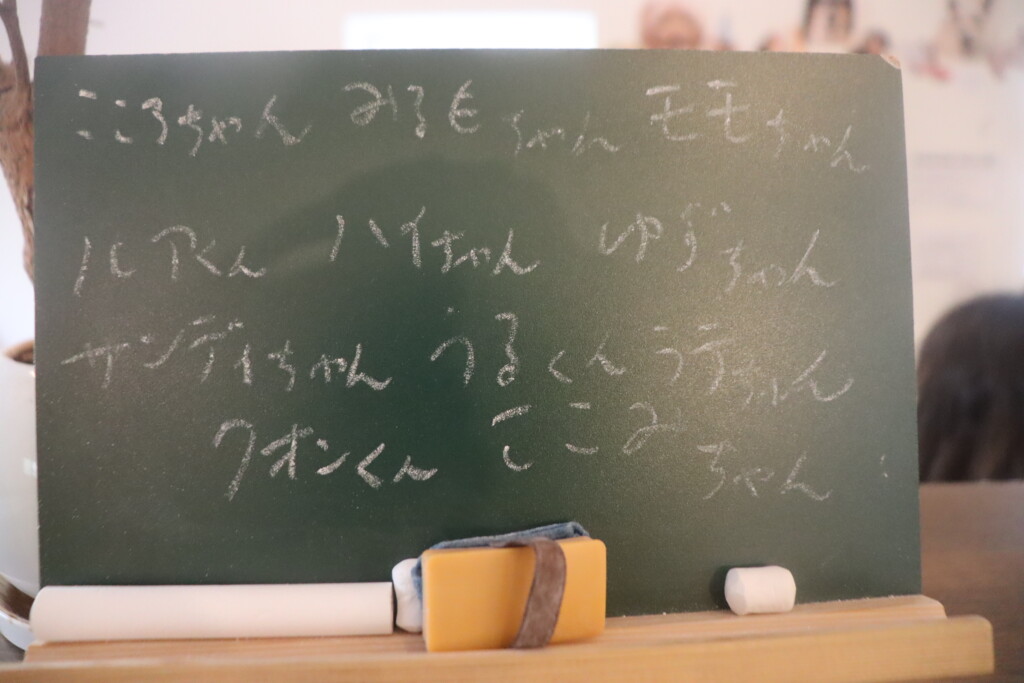 こころちゃん みるもちゃん モモちゃん
ルアくん ハイちゃん ゆずちゃん
サンディちゃん うるくん ラテちゃん
クオンくん ここみちゃん